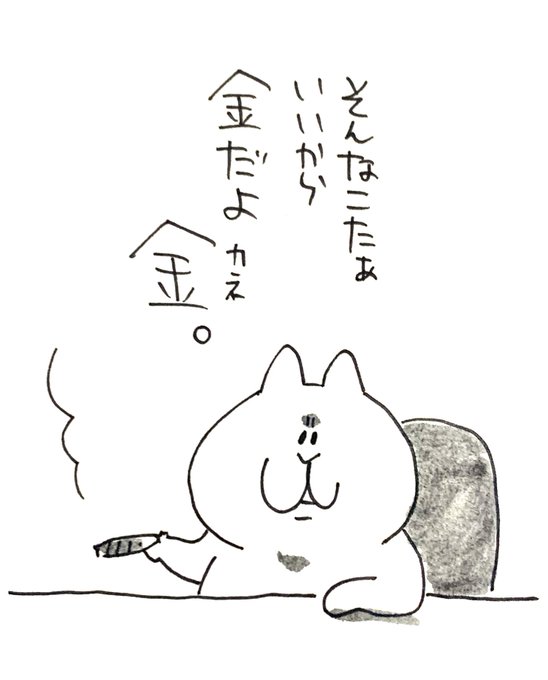 そんなこたぁ
いいから
金だよ
カネ
金。